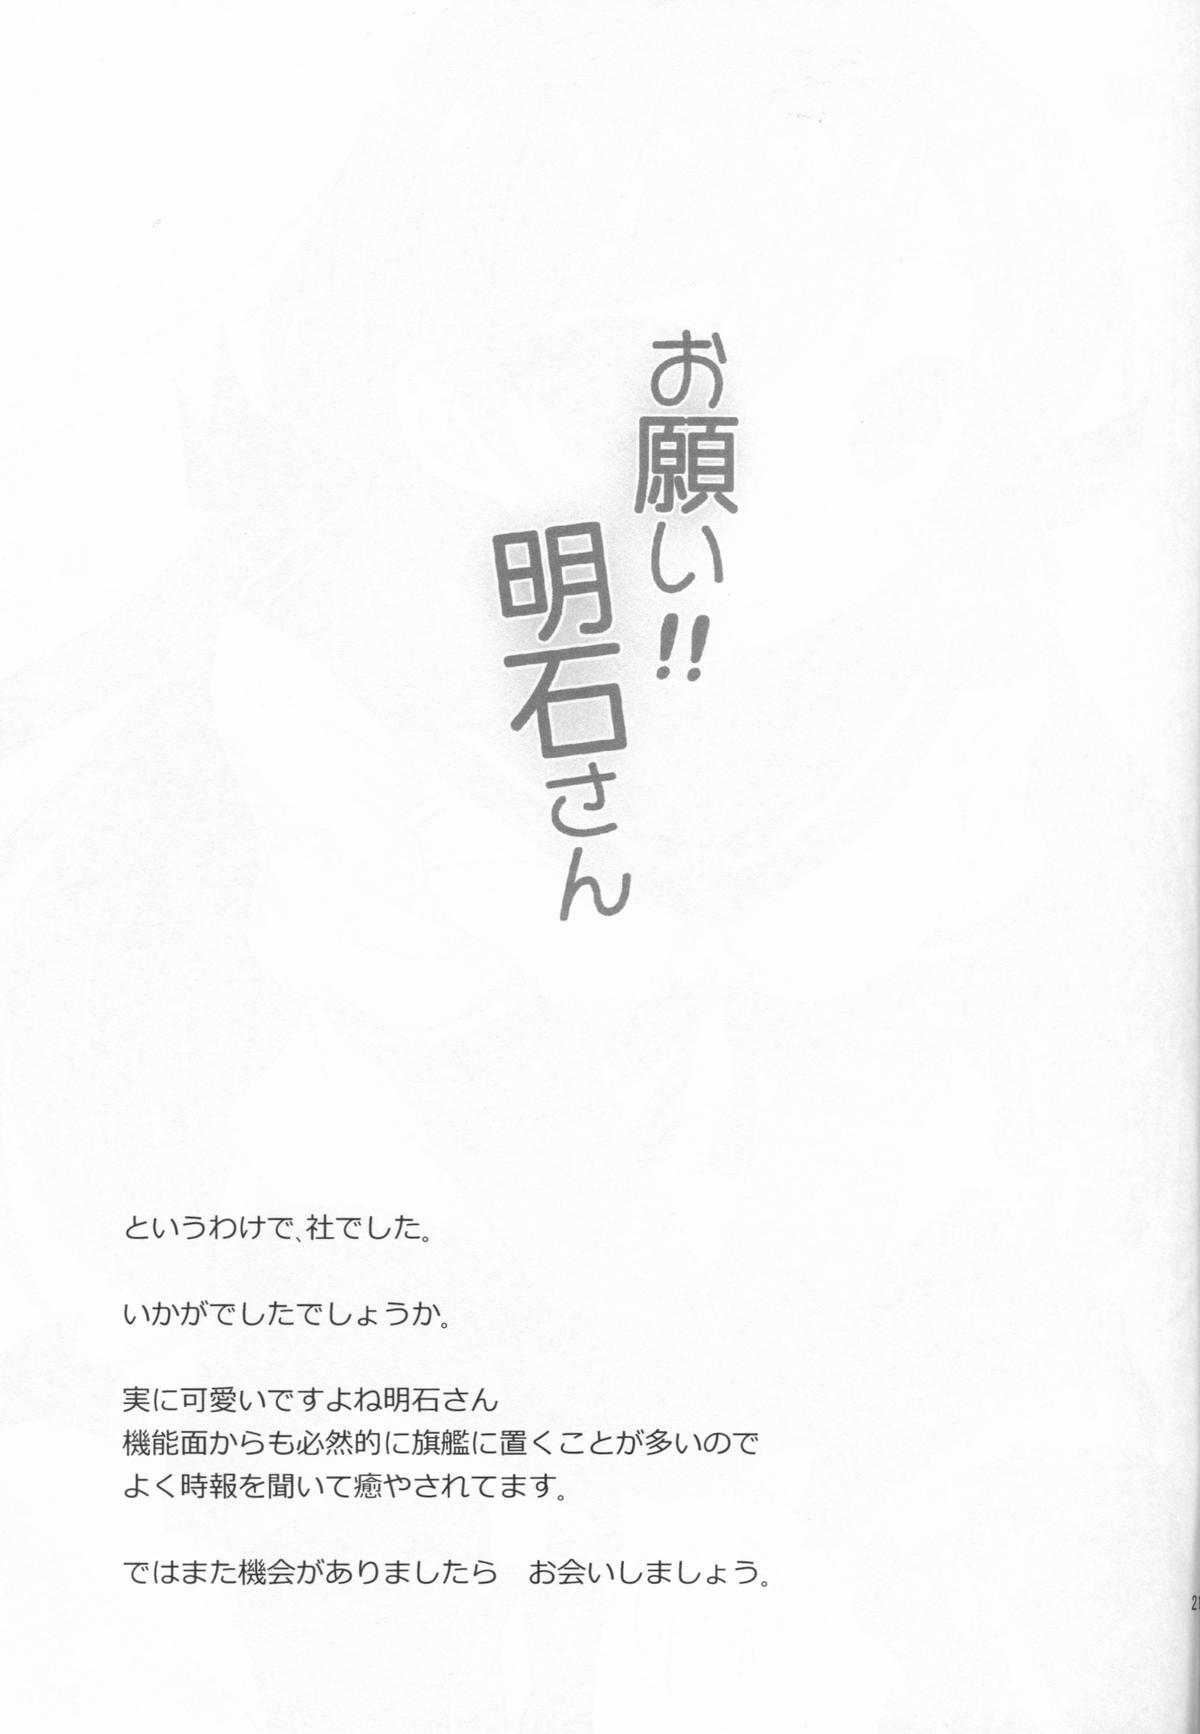 お願い!!
明石さん
というわけで、社でした。
いかがでしたでしょうか。
実に可愛いですよね明石さん
機能面からも必然的に旗艦に置くことが多いので
よく時報を聞いて癒やされてます。
ではまた機会がありましたら　お会いしましょう。
21